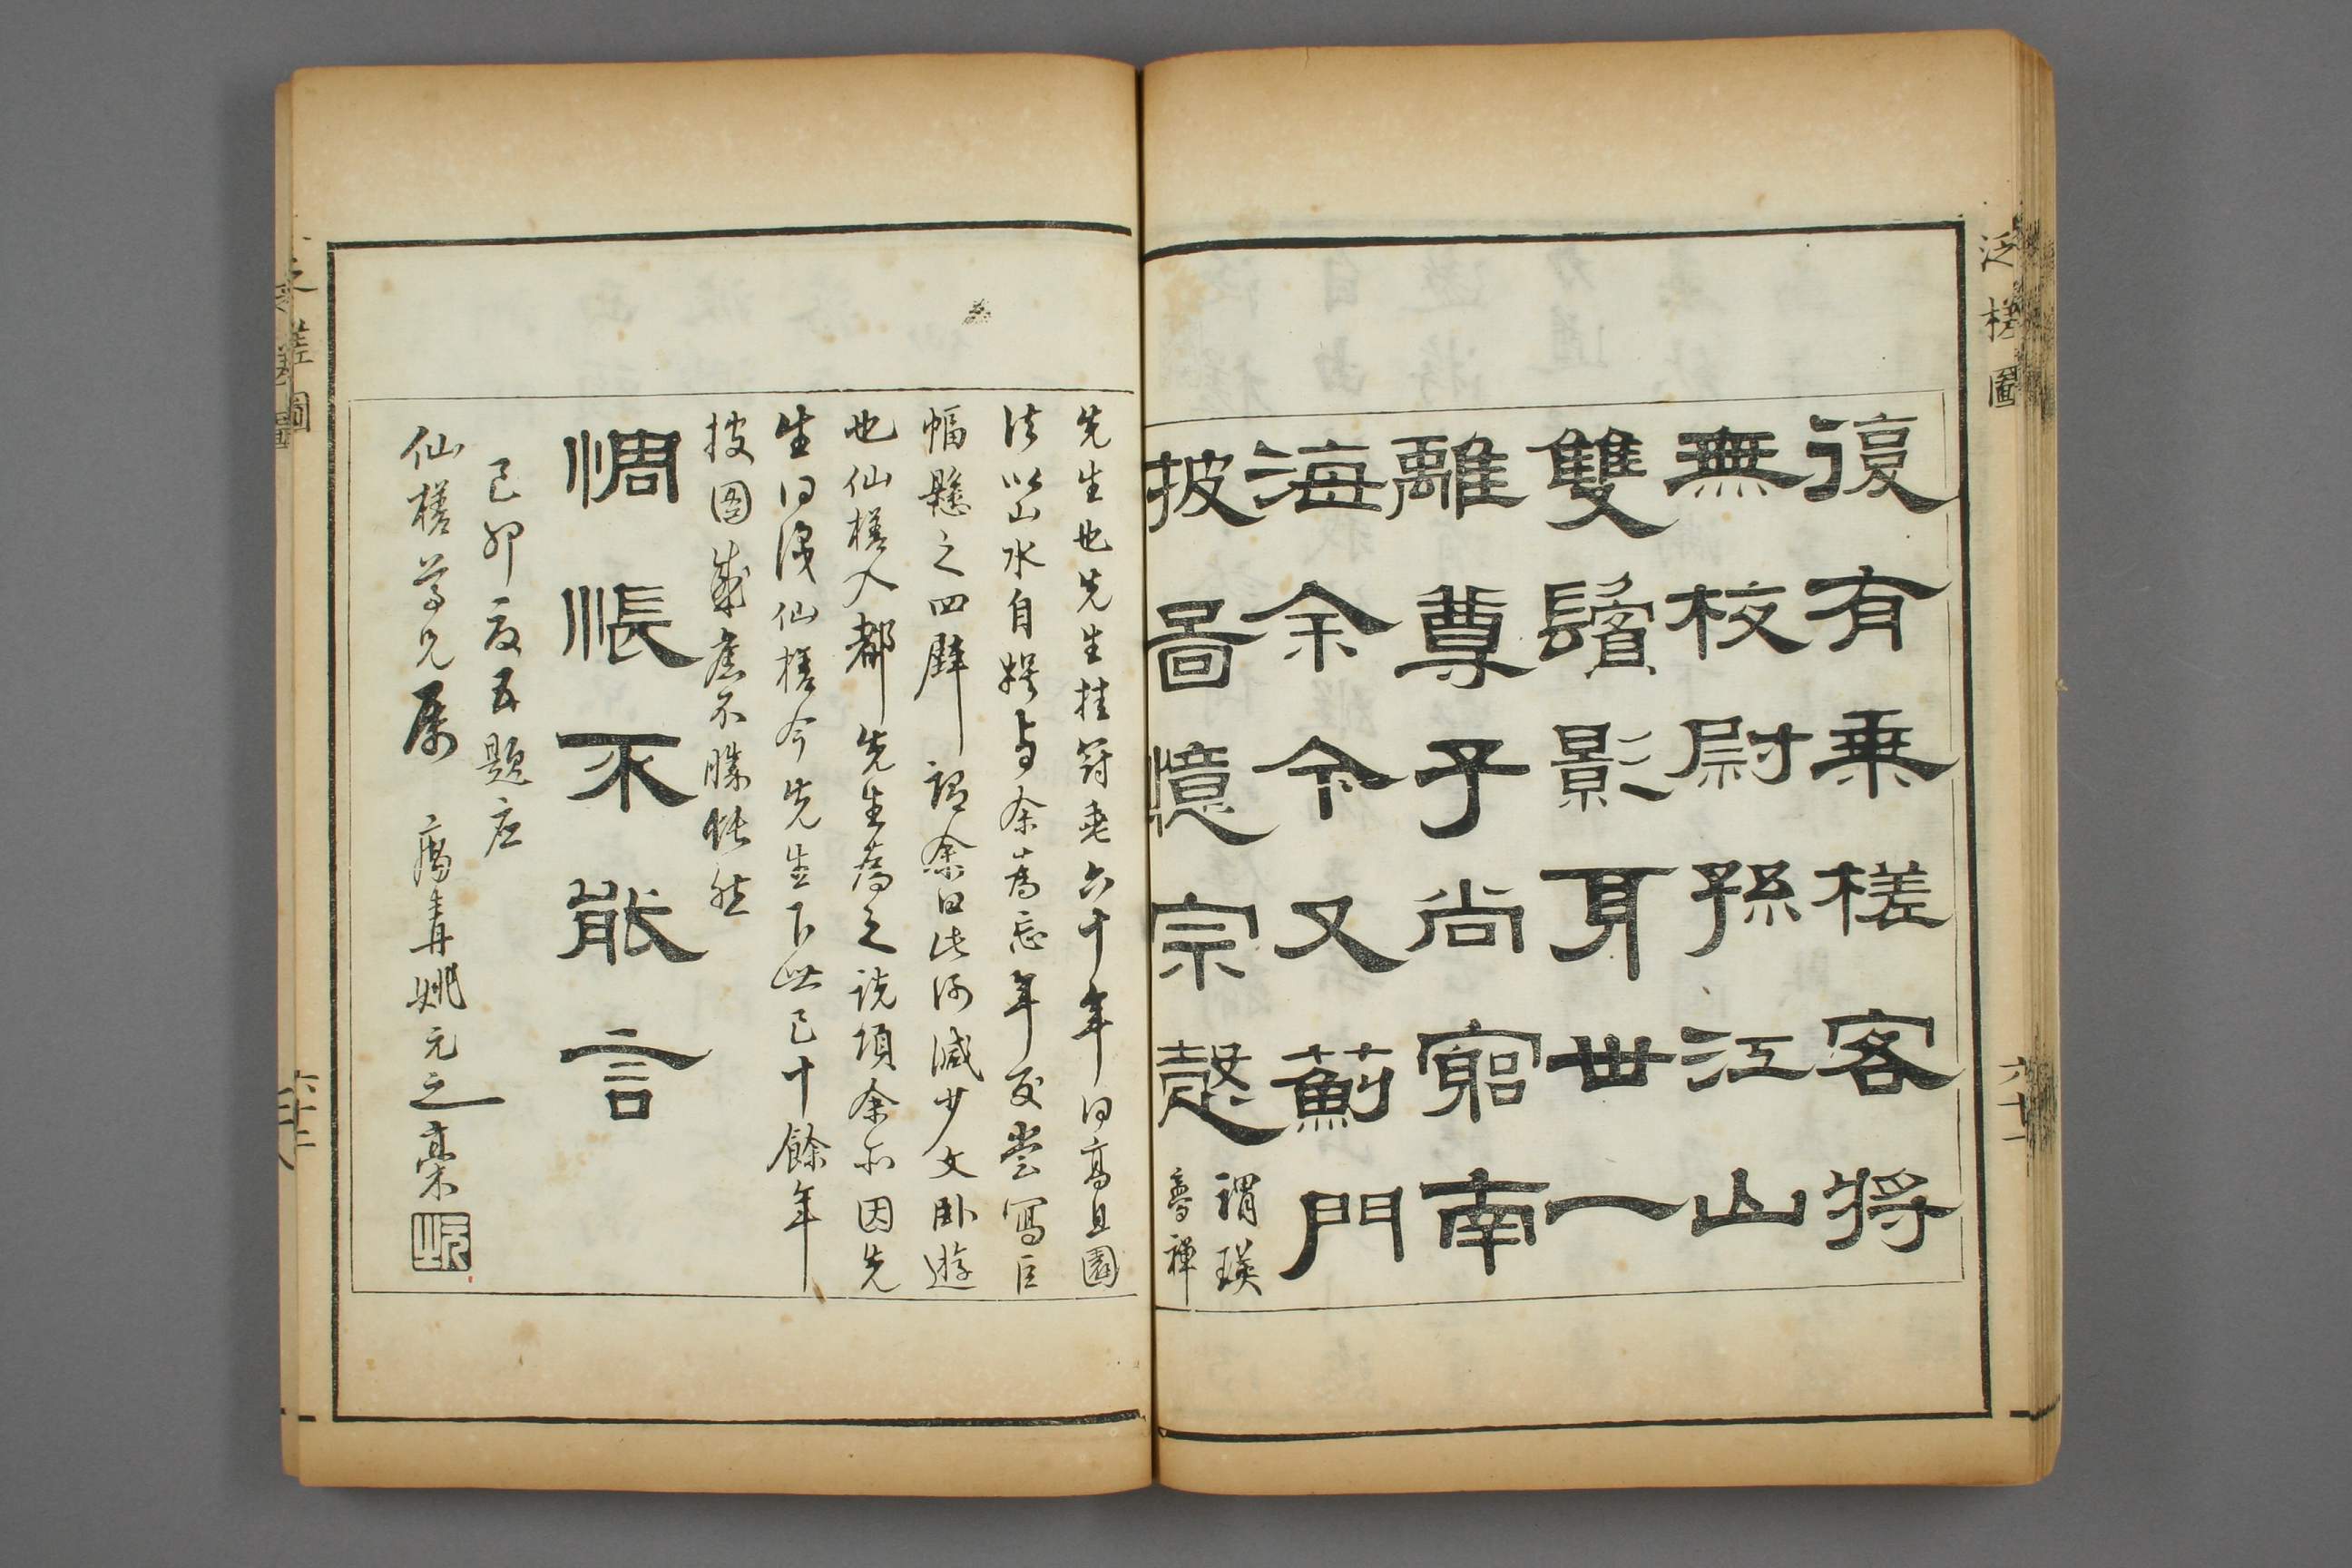 泛槎圖
復有乗槎客將
無校尉孫江山
雙鬢影耳世一
離尊予尚窮南
海余今又薊門
披啚憶宗愨
謂瑛
夢禪
六十一
先生也先生挂冠垂六十年日高且園
法以山水自娱与余為忘年交嘗寫巨
幅懸之四壁謂余曰此何減少文卧遊
也仙槎入都先生為之説項余亦因先
生得識仙槎今先生下世已十餘年
披图感舊不勝悵然
惆悵不能言
己卯夏五題应
仙槎尊兄属 廌青姚元之稾
元之